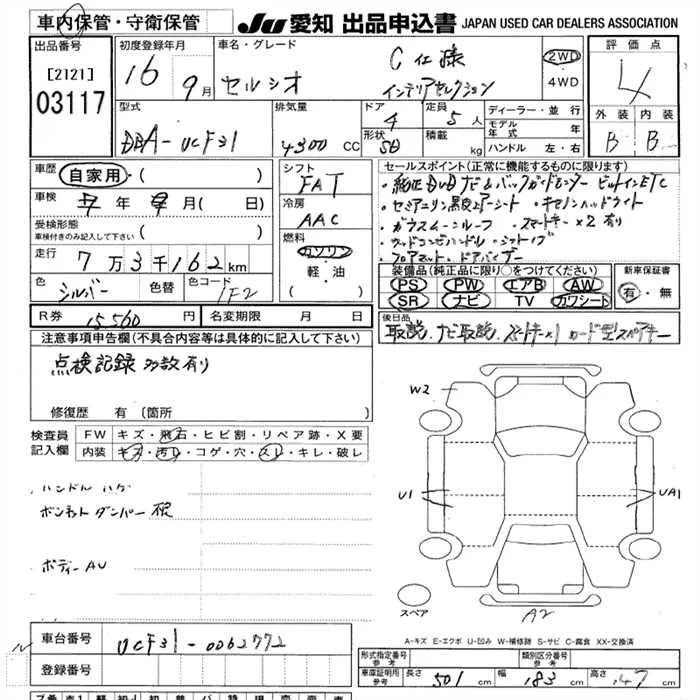 車内保管・守衛保管
JU 愛知 出品申込書 JAPAN USED CAR DEALERS ASSOCIATION
出品番号
[2121]
03117
初度登録年月
16 9月
車名・グレード
セルシオ
C仕様
インテリアセレクション
2WD
4WD
評価点
4
外装 内装
B B
型式
DBA-UCF31
排気量
4300 CC
ドア
4
形状
SD
定員
5人
積載
kg
ディーラー・並行
モデル年式 年
ハンドル 左・右
車歴 自家用・( )
車検 年 月(日)
受検形態
車検付きのみ記入して下さい ( )
走行 7万3千162km
色 シルバー 色替 色コード 1F2
シフト
FAT
冷房
AAC
燃料
ガソリン
軽・油
( )
セールスポイント(正常に機能するものに限ります)
・純正DVDナビ&バックガイドモニター ビルトインETC
・セミアニリン黒革エアーシート ・キセノンヘッドライト
・ガラスムーンルーフ ・スマートキー×2有り
・ウッドコンビハンドル・シフトノブ
・フロアマット・ドアバイザー
装備品(純正品に限り○をつけてください)
PS PW エアB AW
SR ナビ TV カワシート
新車保証書
有・無
R券 15560円 名変期限 月 日
後日品
取説、ナビ取説、スマートキー×1 カード型スペアキー
注意事項申告欄(不具合内容等は具体的に記入して下さい)
点検記録多数有り
修復歴 有(箇所 )
検査員記入欄
FW キズ・飛石・ヒビ割・リペア跡・X要
内装 キズ・汚れ・コゲ・穴・スレ・キレ・破レ
ハンドル ハゲ
ボンネットダンパー
ボディーAU
W2
U1
UA1
スペア
A2
A-キズ E-エクボ U-凹み W-補修跡 S-サビ C-腐食 XX-交換済
車台番号 UCF31-0062772
登録番号
形式指定番号 参考
類別区分番号 参考
車庫証明用 参考 長さ 501cm 幅 183cm 高さ 147cm